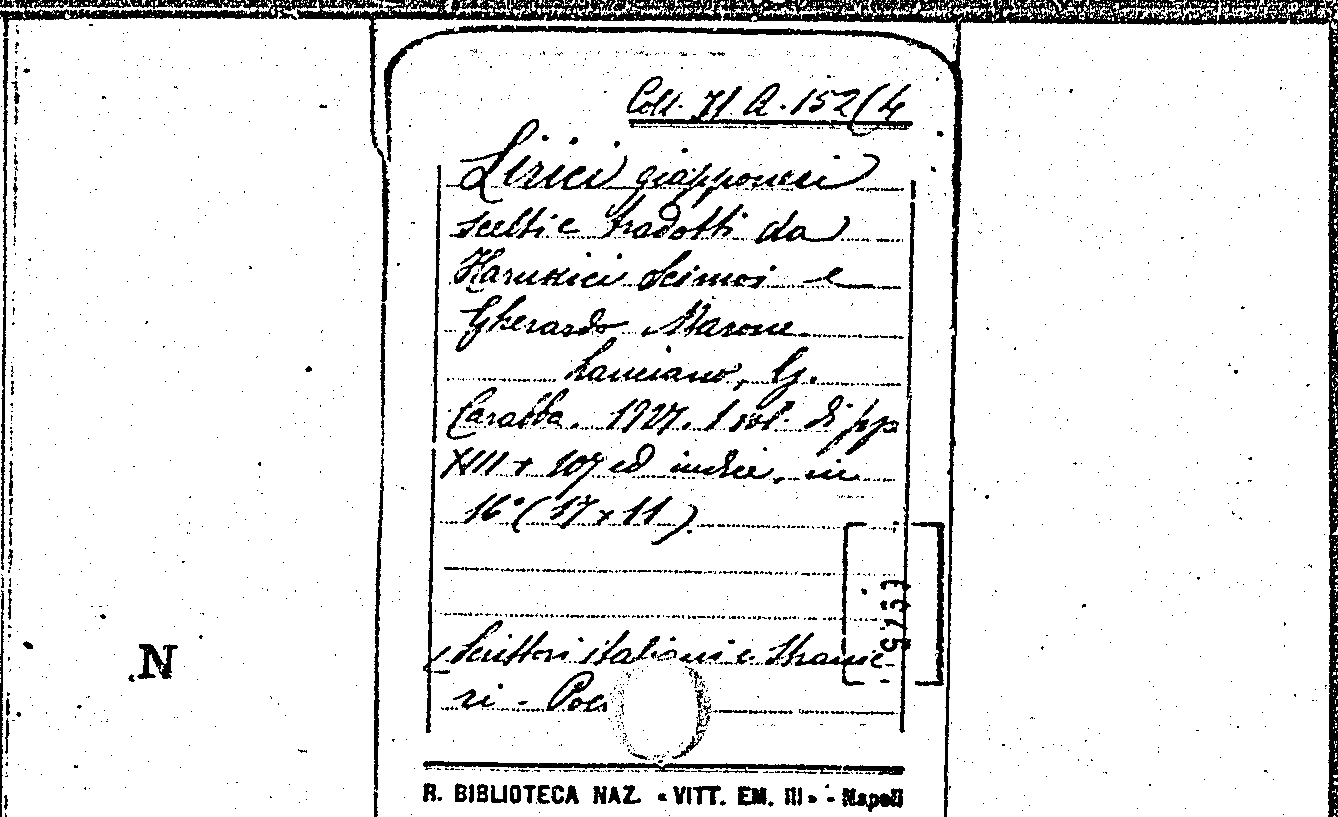 Coll. 71. A. 152(4
Lirici giapponesi
scelti e tradotti da
Harukici Scimoi e
Gherardo Marone
Lanciano, G.
Carabba. 1927. 1 vol. di pp
XIII + 107 ed indice, in
16° (17 x 11).
(Scrittori italiani e stranie-
ri - Poe
N
R. BIBLIOTECA NAZ. «VITT. EM. III» - Napoli